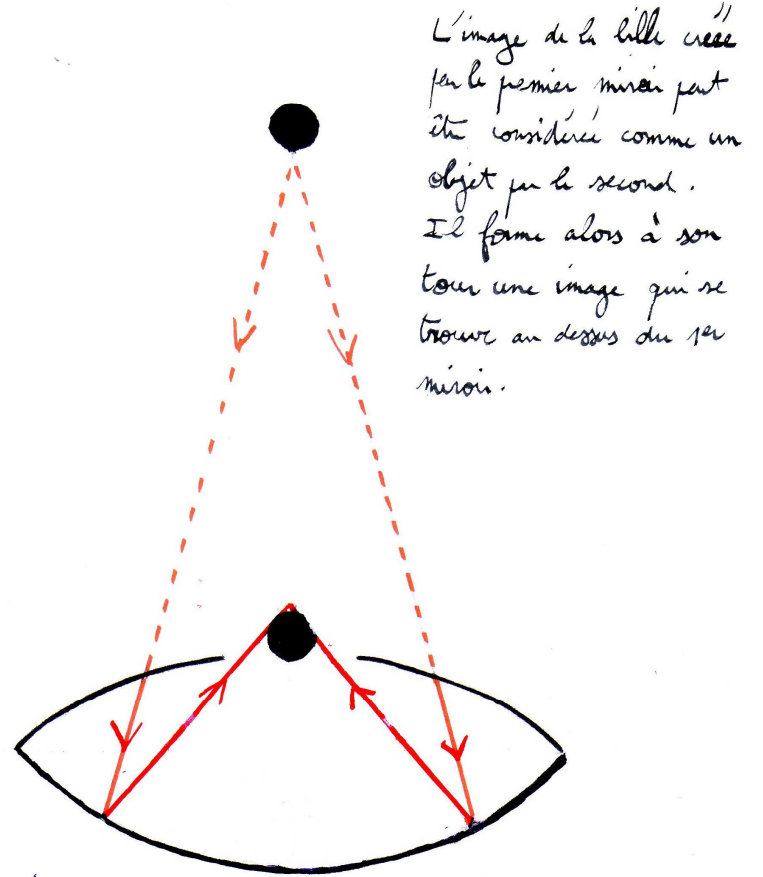 L'image de la bille créée
par le premier miroir peut
être considérée comme un
objet par le second.
Il forme alors à son
tour une image qui se
trouve au dessus du 1er
miroir.